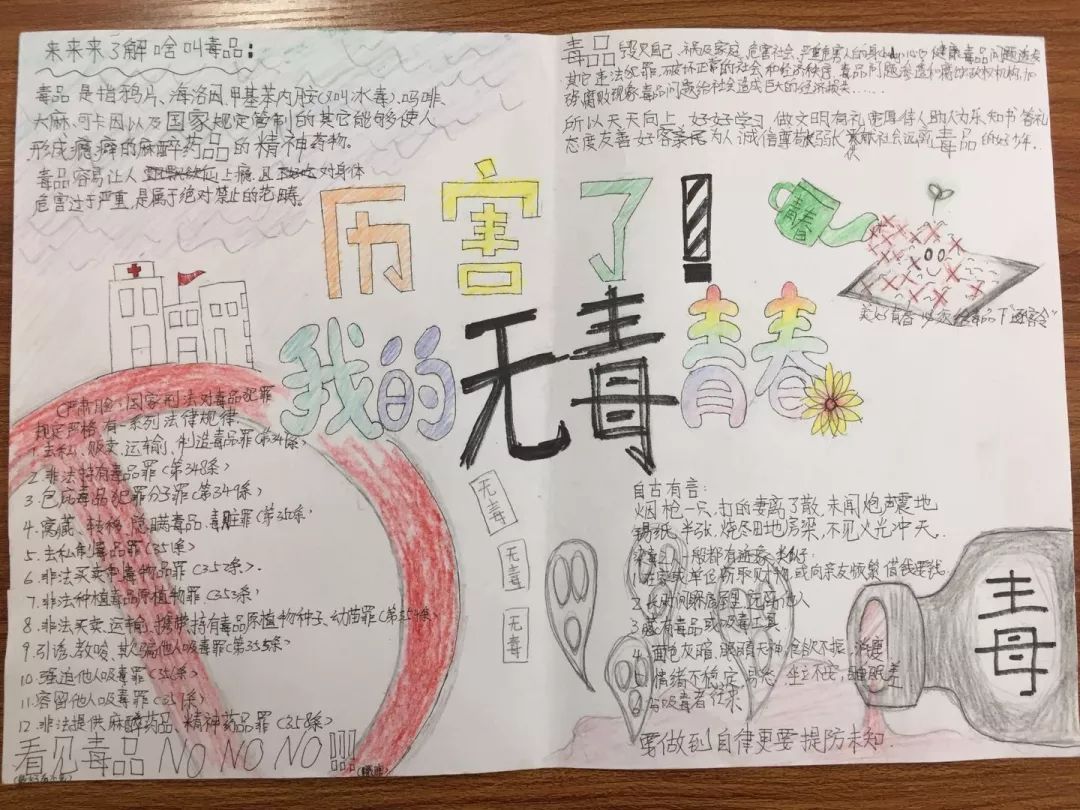 来来来了解啥叫毒品:
毒品是指鸦片、海洛因、甲基苯丙胺(又叫冰毒)、吗啡、
大麻、可卡因以及国家规定管制的其它能够使人
形成瘾癖的麻醉药品的精神药物。
毒品容易让人上瘾且对身体
危害过于严重,是属于绝对禁止的范畴。
毒品毁灭自己、祸及家庭、危害社会、严重危害人的身心健康毒品问题诱发
其它违法犯罪,破坏正常的社会和经济秩序,毒品问题渗透和腐蚀政权机构,加
剧腐败现象毒品问题给社会造成巨大的经济损失……
所以天天向上,好好学习 做文明有礼 助人为乐、知书答礼
态度友善·好客亲民为人诚信尊敬 社会远离毒品的好少年..
厉害了!
我的无毒青春
青春
美好青春 毒品下"逐客令"
严肃脸:国家刑法对毒品犯罪
规定严格有一系列法律规律.
1.去私、贩卖、运输、制造毒品罪(第34条)
2.非法持有毒品罪(第348条)
3.包庇毒品犯罪分子罪(第349条)
4.窝藏、转移、隐瞒毒品、毒脏罪(第350条)
5.去私制毒品罪(351条)
6.非法买卖制毒物品罪(352条).
7.非法种植毒品原植物罪(353条)
8.非法买卖、运输、携带、持有毒品原植物种子、幼苗罪(第354条)
9.引诱、教唆、欺骗他人吸毒罪(第355条)
10.强迫他人吸毒罪(356条)
11.容留他人吸毒罪(357条)
12.非法提供麻醉药品、精神药品罪(358条)
看见毒品NO NO NO!!!
无毒
无毒
无毒
自古有言:
烟枪一只,打的妻离子散,未闻炮声震地
锡纸半张,烧尽田地房梁,不见火光冲天.
1.在家或单位窃取财物,或向亲友频繁借钱
3.藏有毒品或吸毒工具
4.面色灰暗、眼睛无神,食欲不振,消瘦
5.情绪不稳定,易怒,坐立不安,睡眠差
6.与吸毒者往来
毒
要做到自律更要提防未知.